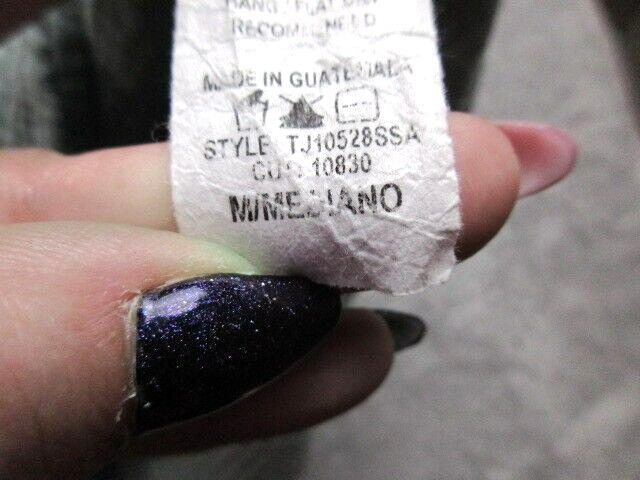 HANG / FLAT DRY
RECOMMENDED
MADE IN GUATEMALA
STYLE TJ10528SSA
CUT 10830
M/MEDIANO